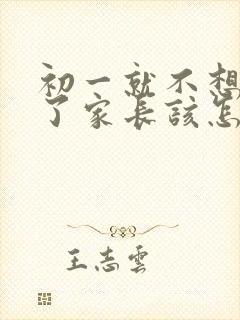 初一就不想
了家长该怎
王志雲